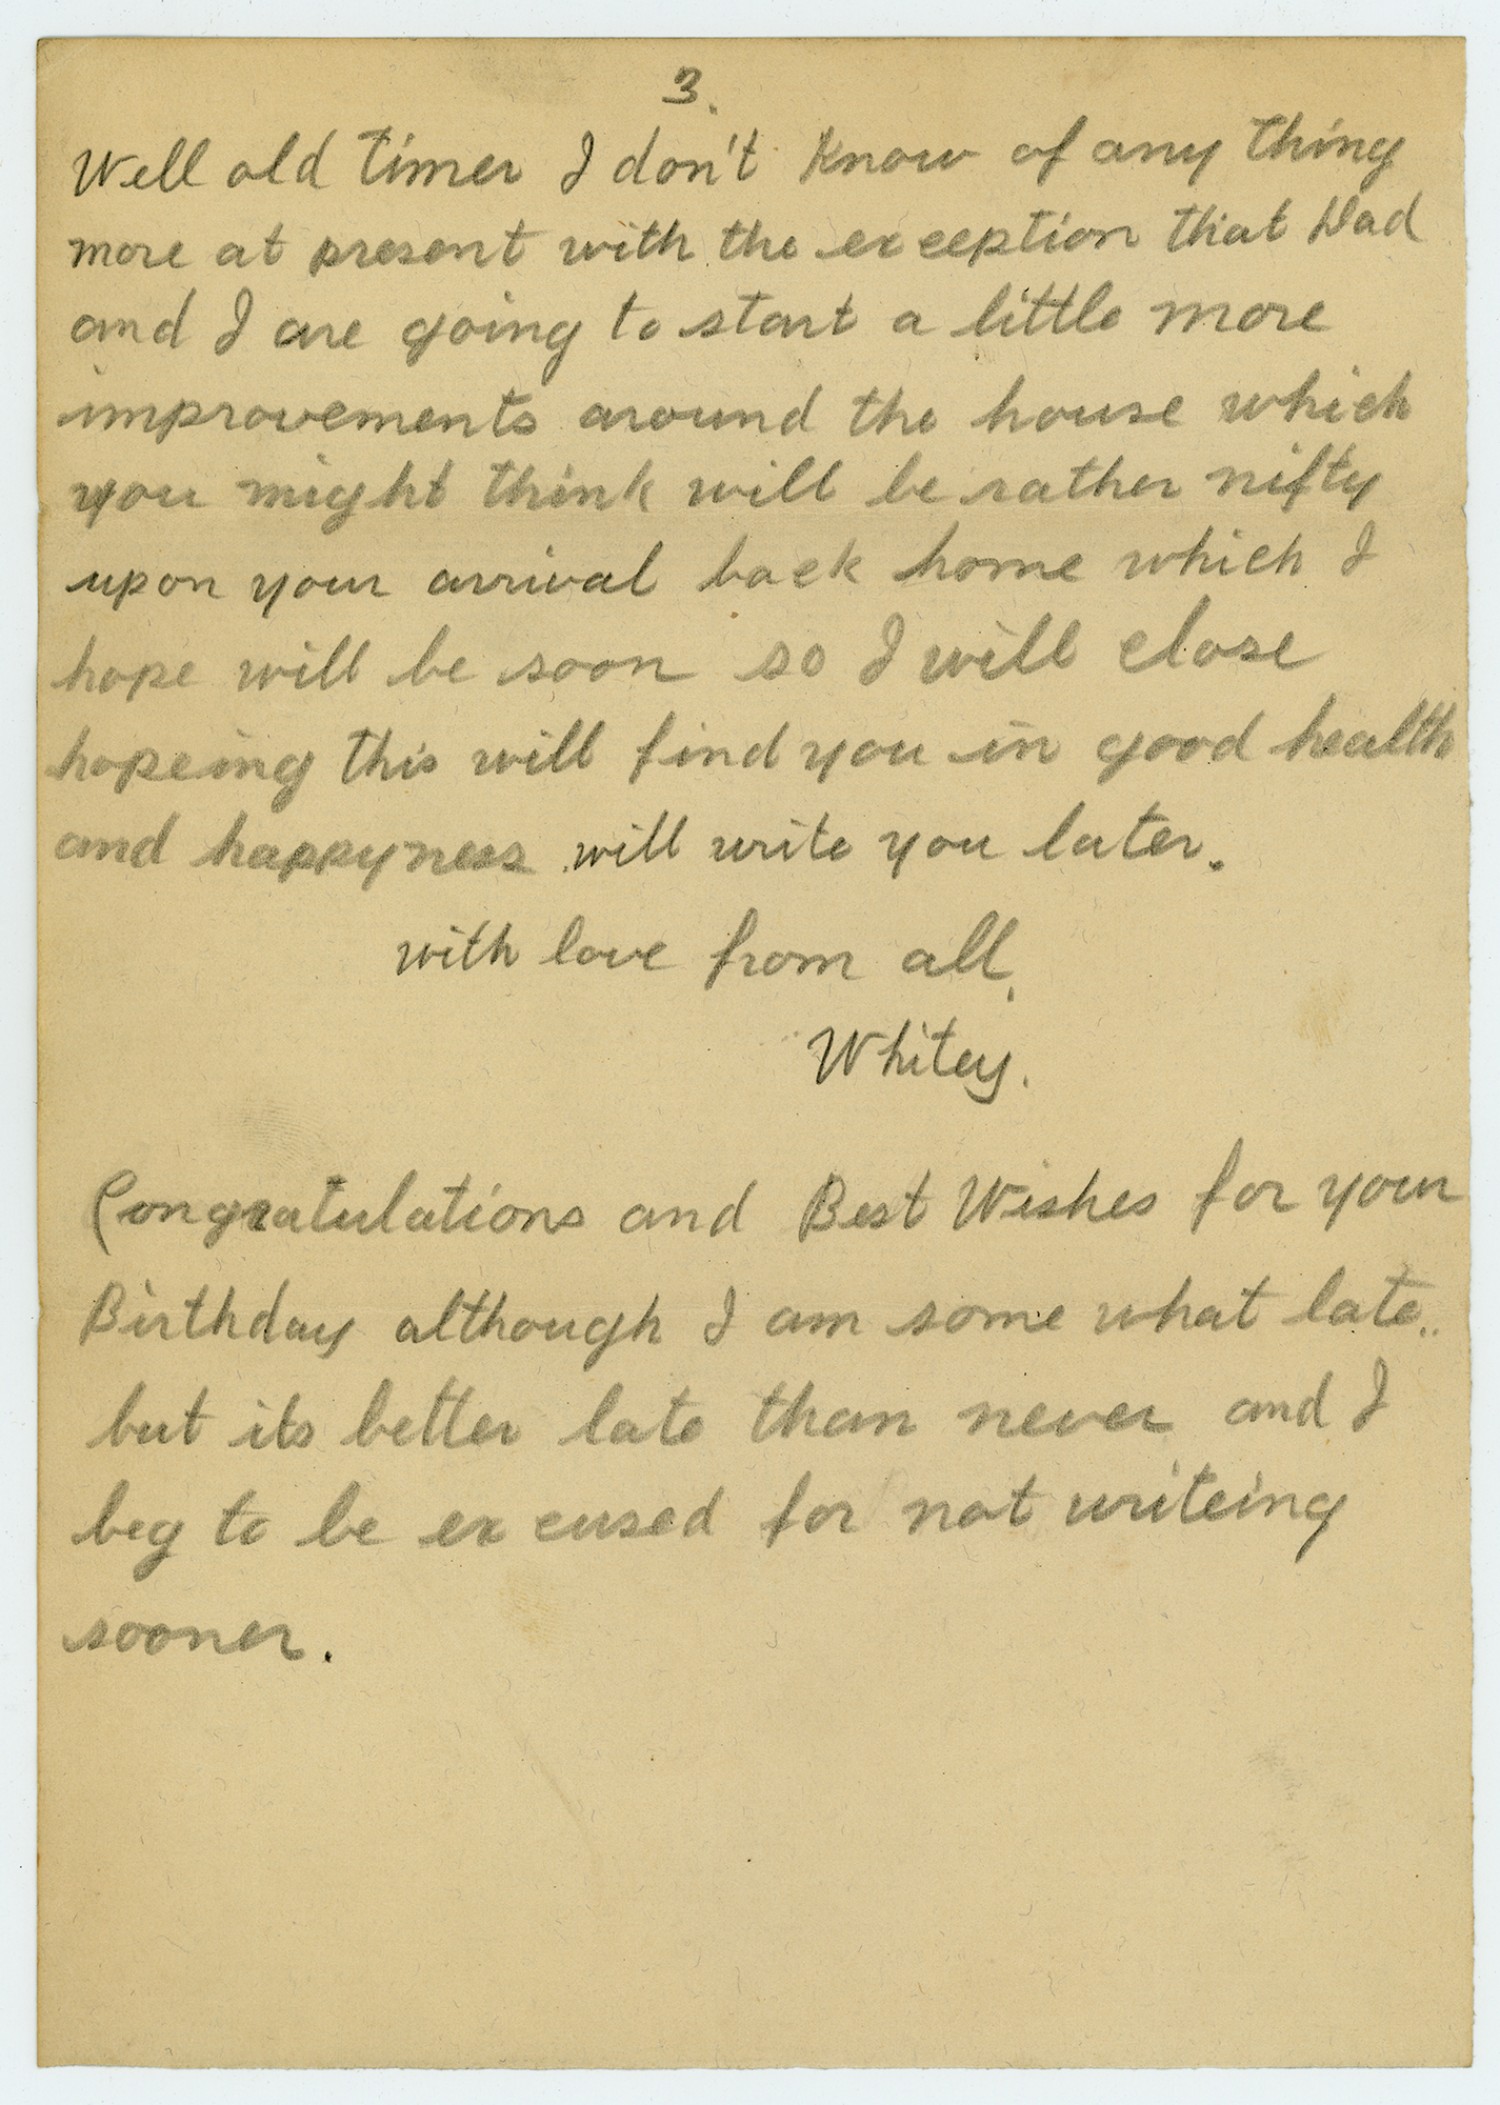 3.
Well old timer I don't know of any thing
more at present with the exception that Dad
and I are going to start a little more
improvements around the house which
you might think will be rather nifty
upon your arrival back home which I
hope will be soon so I will close
hopeing this will find you in good health
and happyness will write you later.
with love from all,
Whitey.
Congratulations and Best Wishes for your
Birthday although I am some what late..
but its better late than never and I
beg to be excused for not writeing
sooner.